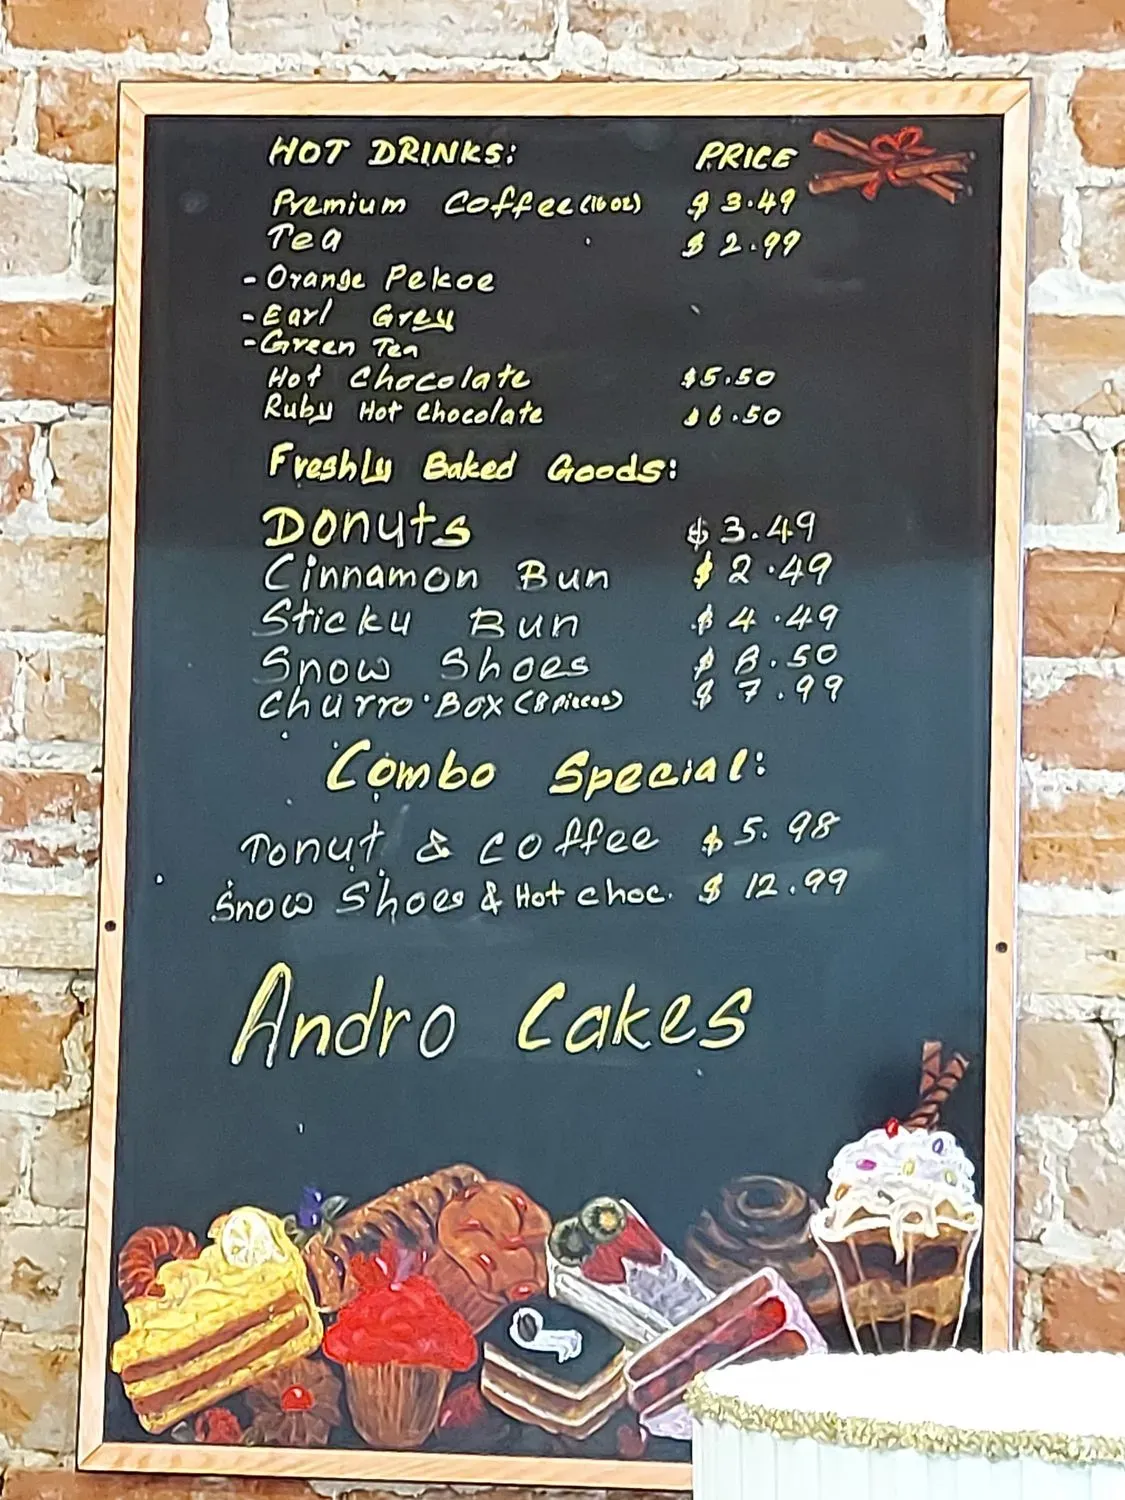 HOT DRINKS: PRICE
Premium Coffee (16 oz) $ 3.49
Tea $ 2.99
- Orange Pekoe
- Earl Grey
- Green Tea
Hot Chocolate $5.50
Ruby Hot Chocolate $6.50
Freshly Baked Goods:
Donuts $3.49
Cinnamon Bun $2.49
Sticky Bun $4.49
Snow Shoes $8.50
Churro Box (8 pieces) $7.99
Combo Special:
Donut & Coffee $5.98
Snow Shoes & Hot choc. $12.99
Andro Cakes